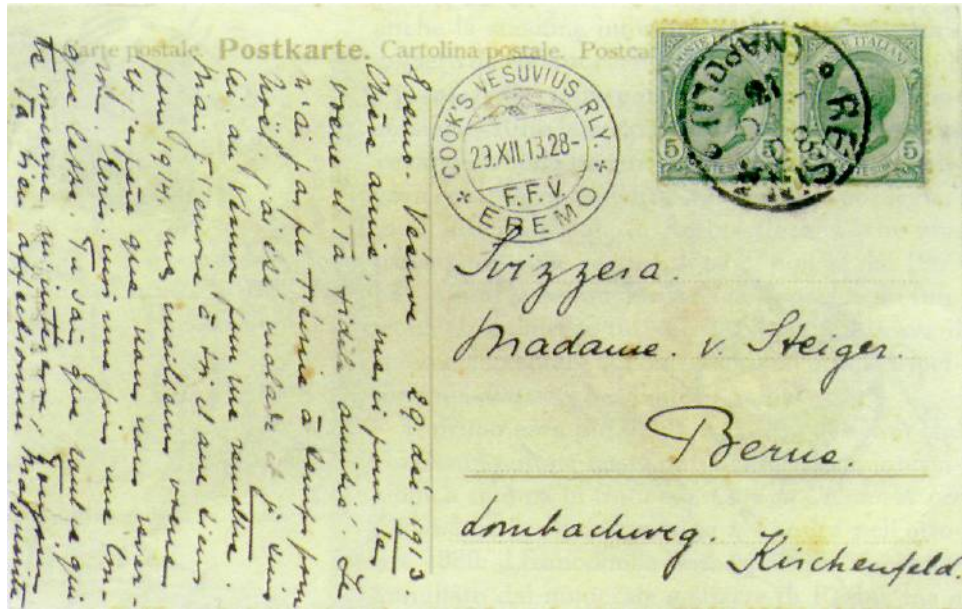 Carte postale. Postkarte. Cartolina postale. Postcar
COOK'S VESUVIUS RLY.
29.XII.13.28-
F.F.V.
EREMO
5
5
RESINA
(NAPOLI)
Svizzera.
Madame. v. Steiger.
Berne.
Lombachweg. Kirchenfeld.
Eremo. Vésuve 29. dec. 1913
Chère amie, merci pour tes
voeux et ta fidèle amitié. Je
n'ai pas pu t'écrire à temps pour
Noël j'ai été malade et je suis
ici au Vésuve pour me remettre.
Mais j'envoie à toi et aux tiens
pour 1914. mes meilleurs voeux
et j'espère que nous nous rever-
rons. Ecris-moi une fois une lon-
gue lettre. Tu sais que tout ce qui
te concerne, m'intéresse, toujours
Ta bien affectionnée, Marguerite